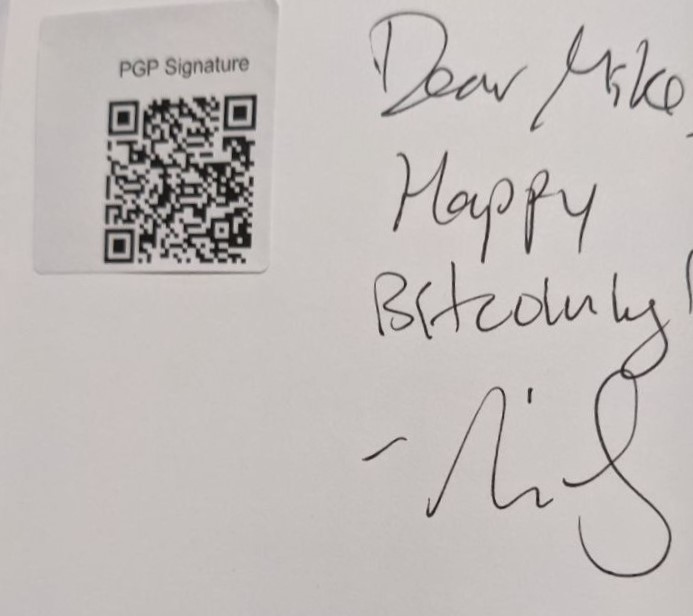 PGP Signature
Dear Mike,
Happy
Bitcoining!